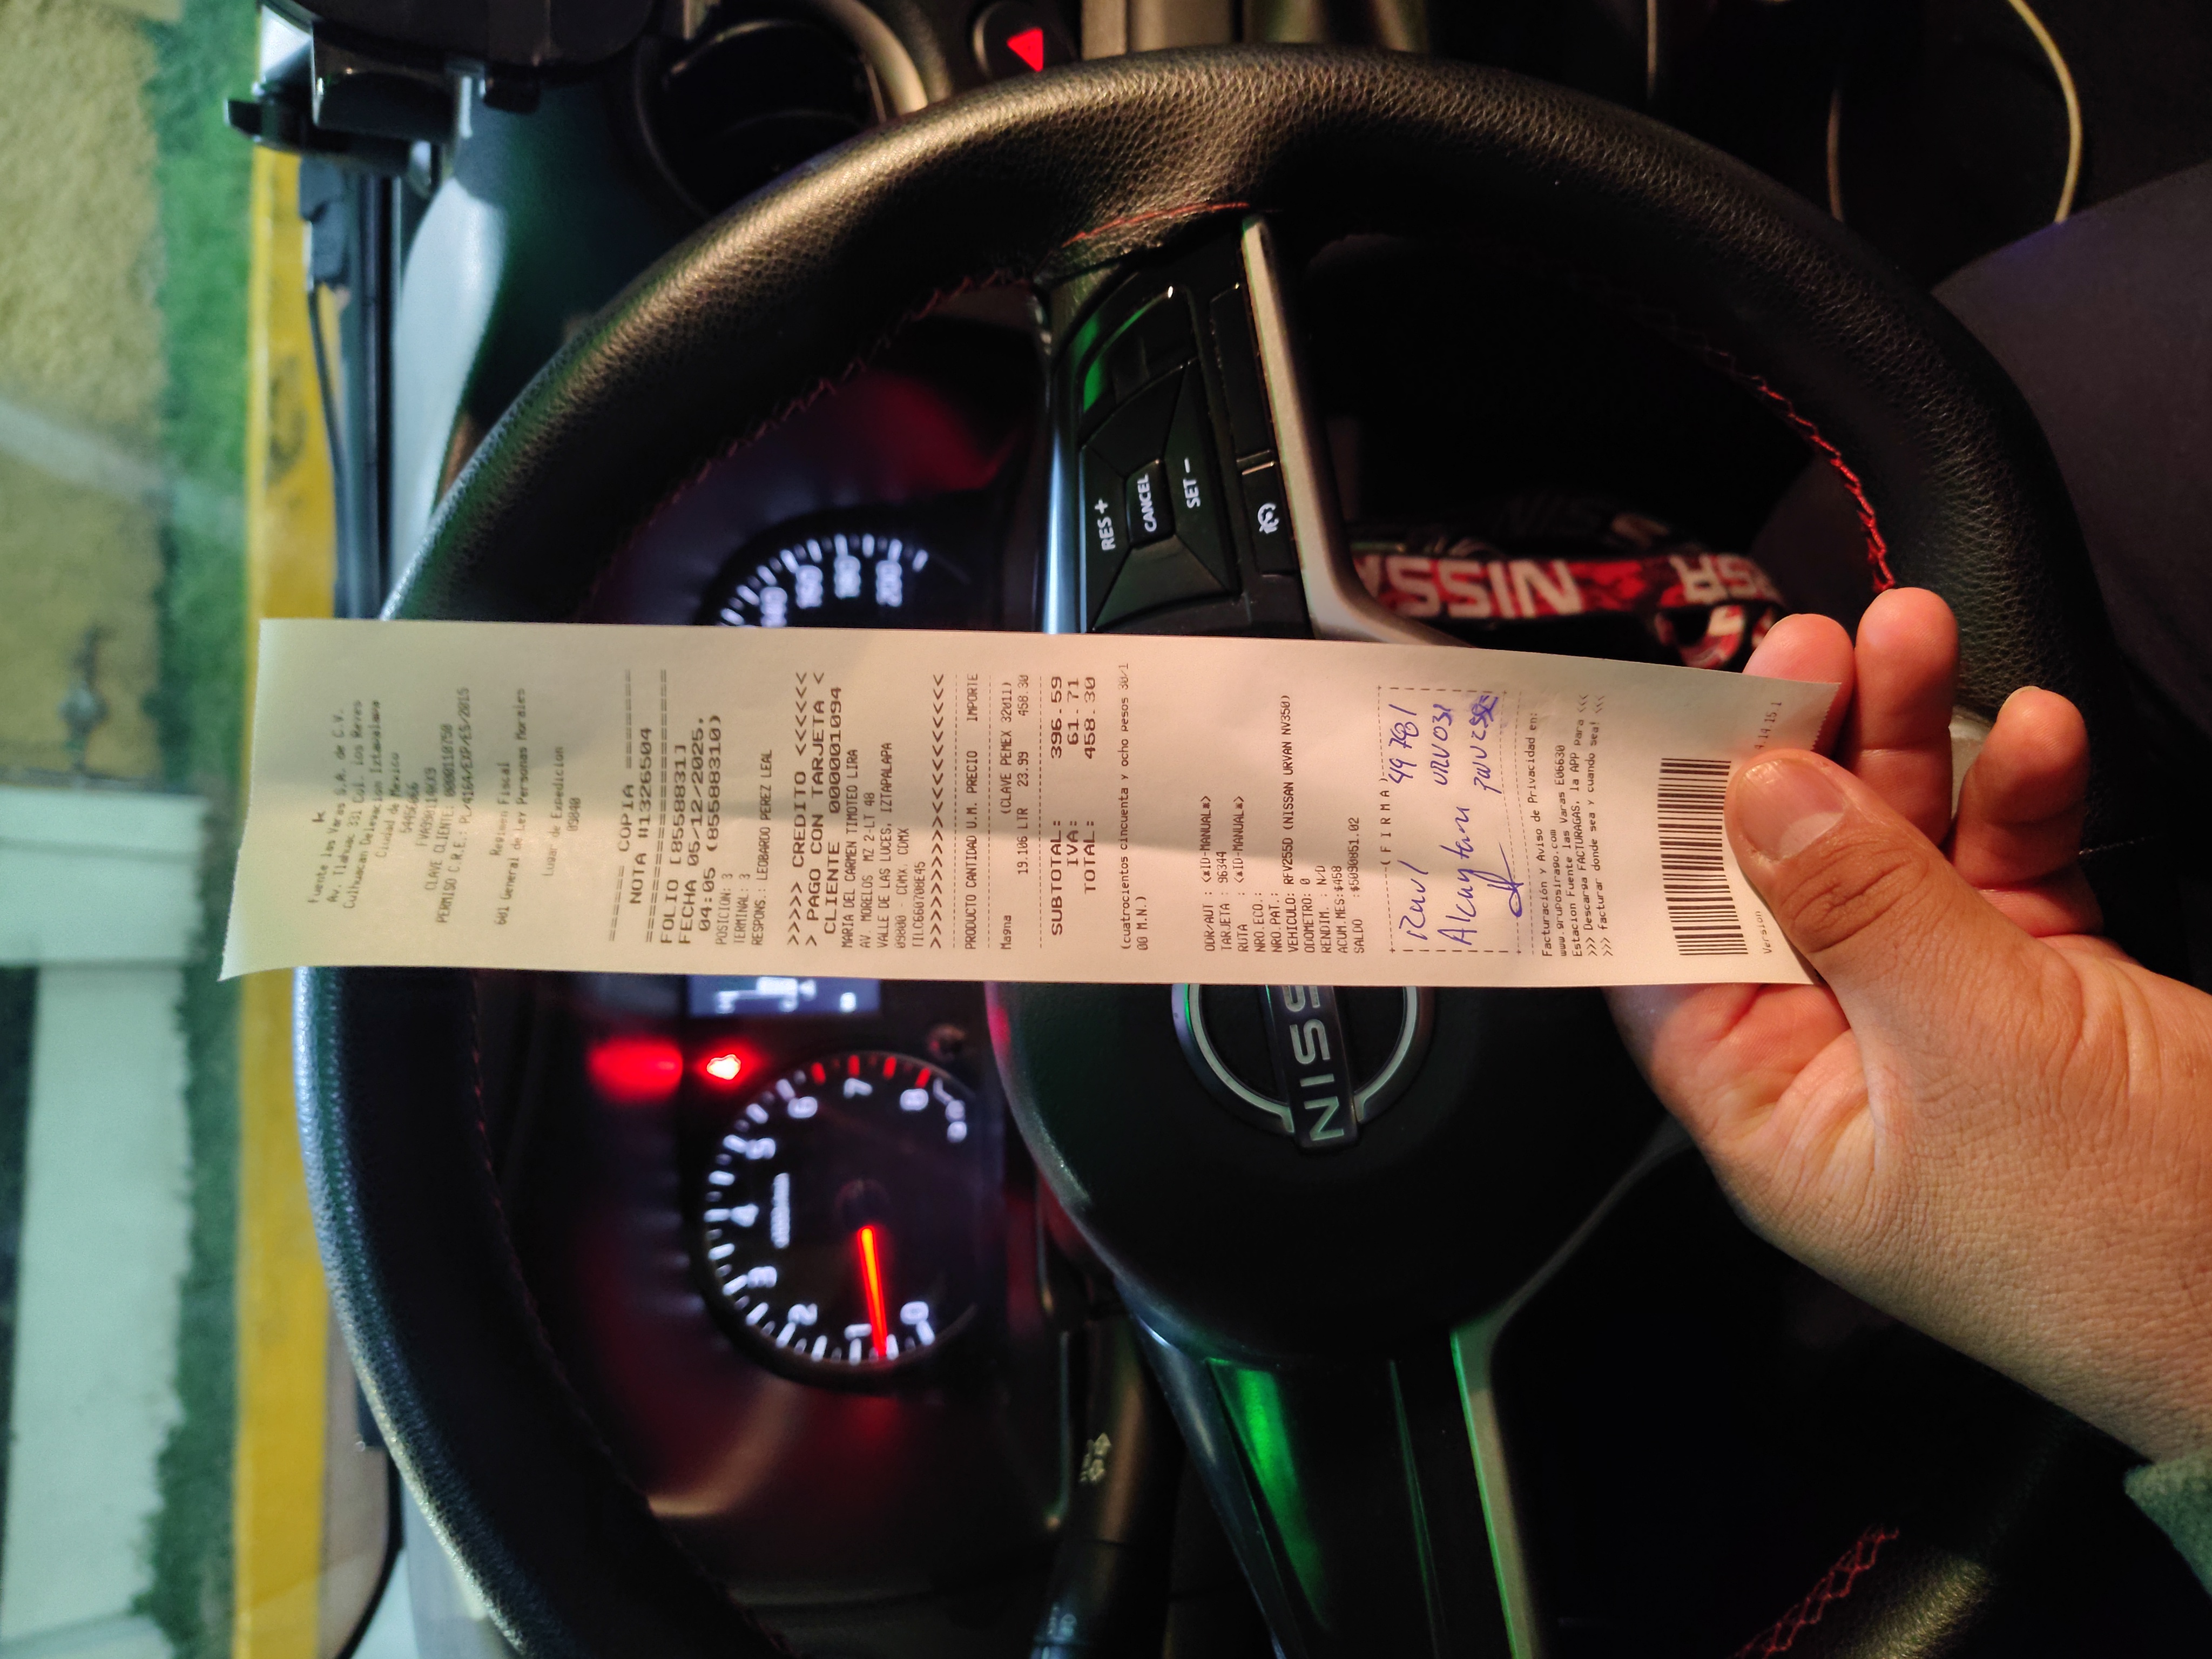 Fuente las Varas S.A. de C.V.
Av. Tlahuac 331 Col. los Reyes
Culhuacan Delegacion Iztapalapa
Ciudad de Mexico
CLAVE CLIENTE: 0000110750
PERMISO C.R.E.: PL/4164/EXP/ES/2015
Regimen Fiscal
601 General de Ley Personas Morales
Lugar de Expedicion
09840
====== COPIA ======
NOTA #1326504
FOLIO [8558831]
FECHA 05/12/2025,
04:05 (85588310)
POSICION: 3
TERMINAL: 3
RESPONS.: LEOBARDO PEREZ LEAL
>>>>> CREDITO <<<<<<
> PAGO CON TARJETA <
CLIENTE 0000001094
MARIA DEL CARMEN TIMOTEO LIRA
AV. MORELOS MZ 2-LT 48
VALLE DE LAS LUCES, IZTAPALAPA
09800 - CDMX CDMX
TILC660708E45
PRODUCTO CANTIDAD U.M. PRECIO IMPORTE
Magna (CLAVE PEMEX 32011)
19.106 LTR 23.99 458.30
SUBTOTAL: 396.59
IVA: 61.71
TOTAL: 458.30
(cuatrocientos cincuenta y ocho pesos 30/1
00 M.N.)
ODR/AUT : <*ID-MANUAL*>
TARJETA : 96344
RUTA : <*ID-MANUAL*>
NRO.ECO.:
NRO.PAT.:
VEHICULO: RFV255D (NISSAN URVAN NV350)
ODOMETRO: 0
RENDIM. : N/D
ACUM.MES:$458
SALDO :$5090851.02
(FIRMA)
Raul 49781
Alcantara URV031
Facturación y Aviso de Privacidad en:
www.gruposirago.com
Estacion Fuente las Varas E06630
>>> Descarga FACTURAGAS, la APP para <<<
>>> facturar donde sea y cuando sea! <<<
Version 4.14.15.1
RES +
CANCEL
SET −
NISSAN
160
180
200
0
1
2
3
4
5
6
7
8